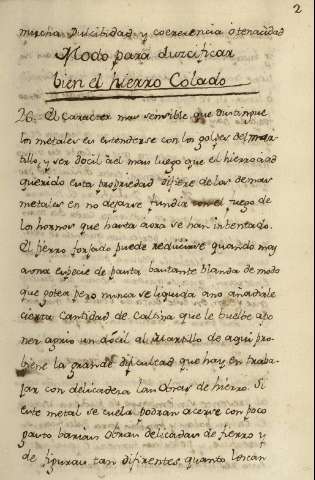 2
mucha Ducilidad y coexerencia o tenacidad
Modo para dulcificar
bien el hierro Colado
20. El Caracter mas sensible que distingue
los metales es estenderse con los golpes del mar-
tillo, y ser docil a el mas luego que el hierro a ad
querido esta propriedad difiere de los demas
metales en no dejarse fundir con el fuego de
los hornos que hasta aora se han intentado.
El fierro forjado puede reducirse quando mas
a una especie de pasta bastante blanda de modo
que gotea pero nunca se liquida a no añadirle
cierta Cantidad de que le buelbe a po
ner agrio un docil al Martillo de aqui pro-
biene la grande dificulcad que hay en traba-
jar con delicadeza las Obras de hierro. Si
este metal se cuela podran acerse con poco
gasto barias Obras delicadas de fierro y
de figuras tan difirentes quanto